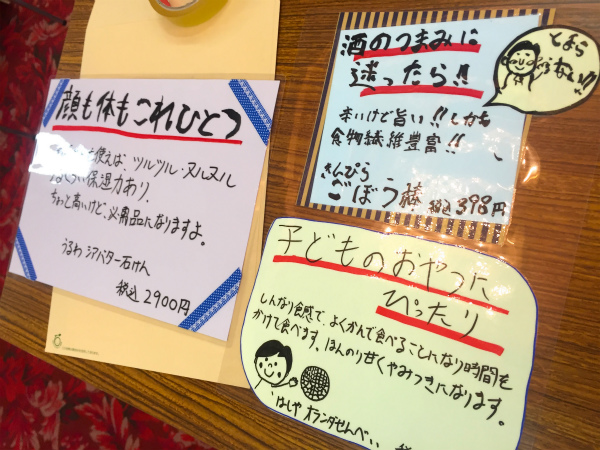 顔も体もこれひとつ
使えば、ツルツル・ヌルヌル
保湿力あり。
ちょっと高いけど、必需品になりますよ。
うるわ シアバター石けん
税込2900円
酒のつまみに
迷ったら!!
とまらない!!
辛いけど旨い!!しかも
食物繊維豊富!!
きんぴら
ごぼう棒 税込398円
子どものおやつに
ぴったり
しんなり食感で、よくかんで食べることになり時間を
かけて食べます。ほんのり甘くやみつきになります。
はしや オランダせんべい